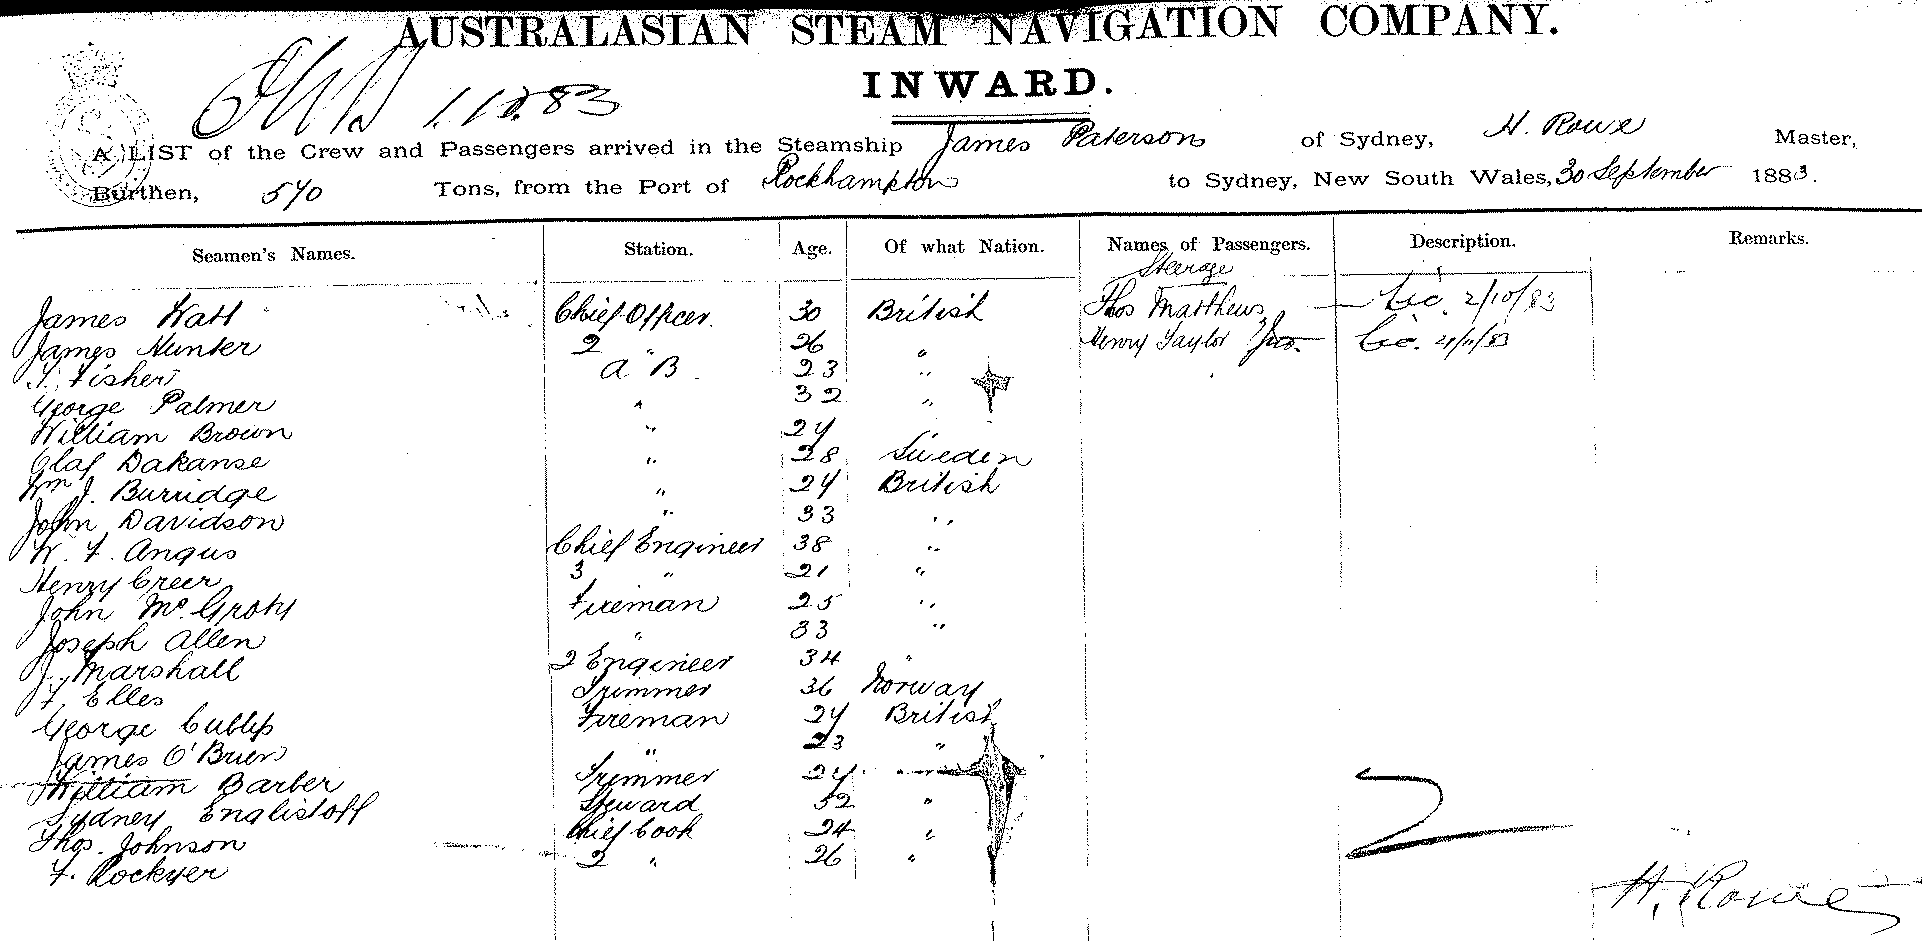 AUSTRALASIAN STEAM NAVIGATION COMPANY.
INWARD.
1.10.83
A LIST of the Crew and Passengers arrived in the Steamship James Paterson of Sydney, H. Rowe Master,
Burthen, 540 Tons, from the Port of Rockhampton to Sydney, New South Wales, 30 September 1883.
Seamen's Names. Station. Age. Of what Nation. Names of Passengers. Description. Remarks.
Steerage
James Watt Chief Officer 30 British Thos Matthews 2/10/83
James Hunter 2 " 26 " Henry Taylor
Fisher A B 23 "
George Palmer " 32 "
William Brown " 24
Olaf Dakanse " 28 Sweden
Wm J. Burridge " 24 British
John Davidson " 33 "
W. F. Angus Chief Engineer 38 "
Henry Creer 3 " 21 "
John McGroty Fireman 25 "
Joseph Allen " 33 "
J. Marshall 2 Engineer 34 "
F. Elles Trimmer 36 Norway
George Cubbis Fireman 24 British
James O'Brien " 23 "
William Barber Trimmer 24 "
Sydney Steward 52 "
Thos. Johnson Chief Cook 24 "
F. Rockyer 2 " 26 "
H. Rowe